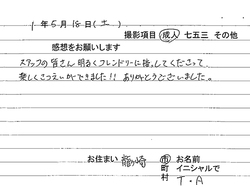 1年5月18日(土)
撮影項目 成人 七五三 その他
感想をお願いします
スタッフの皆さん明るくフレンドリーに接してくださって、
楽しくさつえいができました!! ありがとうございました。
お住まい 龍ヶ崎 市 お名前
町 イニシャルで
村 T・A